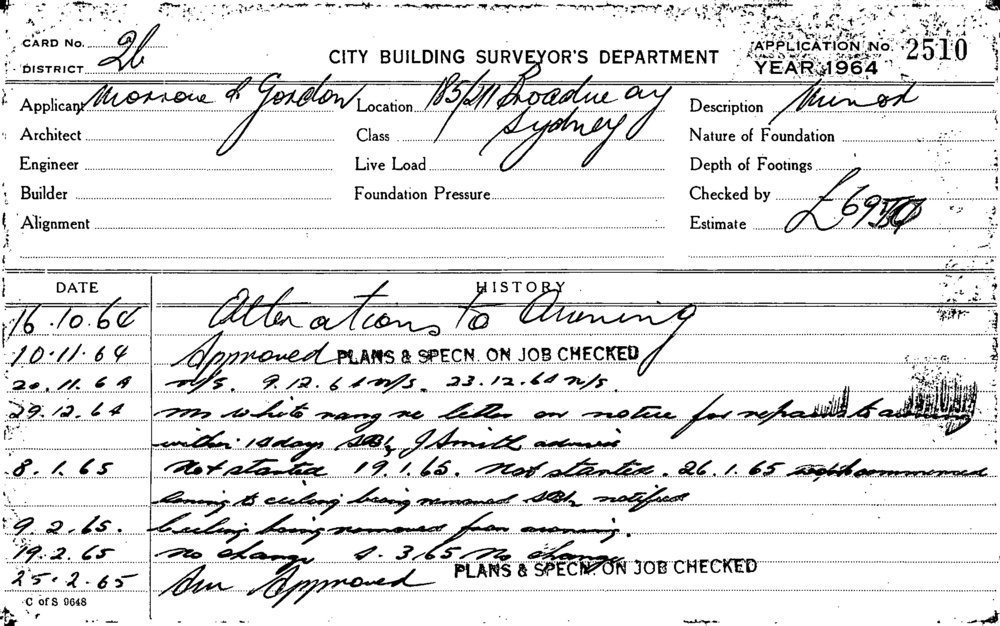 CARD No. 26
DISTRICT
CITY BUILDING SURVEYOR'S DEPARTMENT
APPLICATION No. 2510
YEAR 1964
Applicant Morrow & Gordon Location 185/211 Broadway Description Minor
Sydney
Architect Class Nature of Foundation
Engineer Live Load Depth of Footings
Builder Foundation Pressure Checked by
Alignment Estimate £69
DATE HISTORY
16.10.64 Alterations to Awning
10.11.64 Approved PLANS & SPECN. ON JOB CHECKED
20.11.64 n/s. 9.12.64 n/s. 23.12.64 n/s.
29.12.64 Mr White rang re letter on notice for repairs to awning
within 14 days J Smith
8.1.65 Not started 19.1.65. Not started. 26.1.65 commenced
lining to ceiling being removed notified
9.2.65. Ceiling being removed from awning.
19.2.65 No change 3.65 No change
25.2.65 Approved PLANS & SPECN. ON JOB CHECKED
C of S 9648